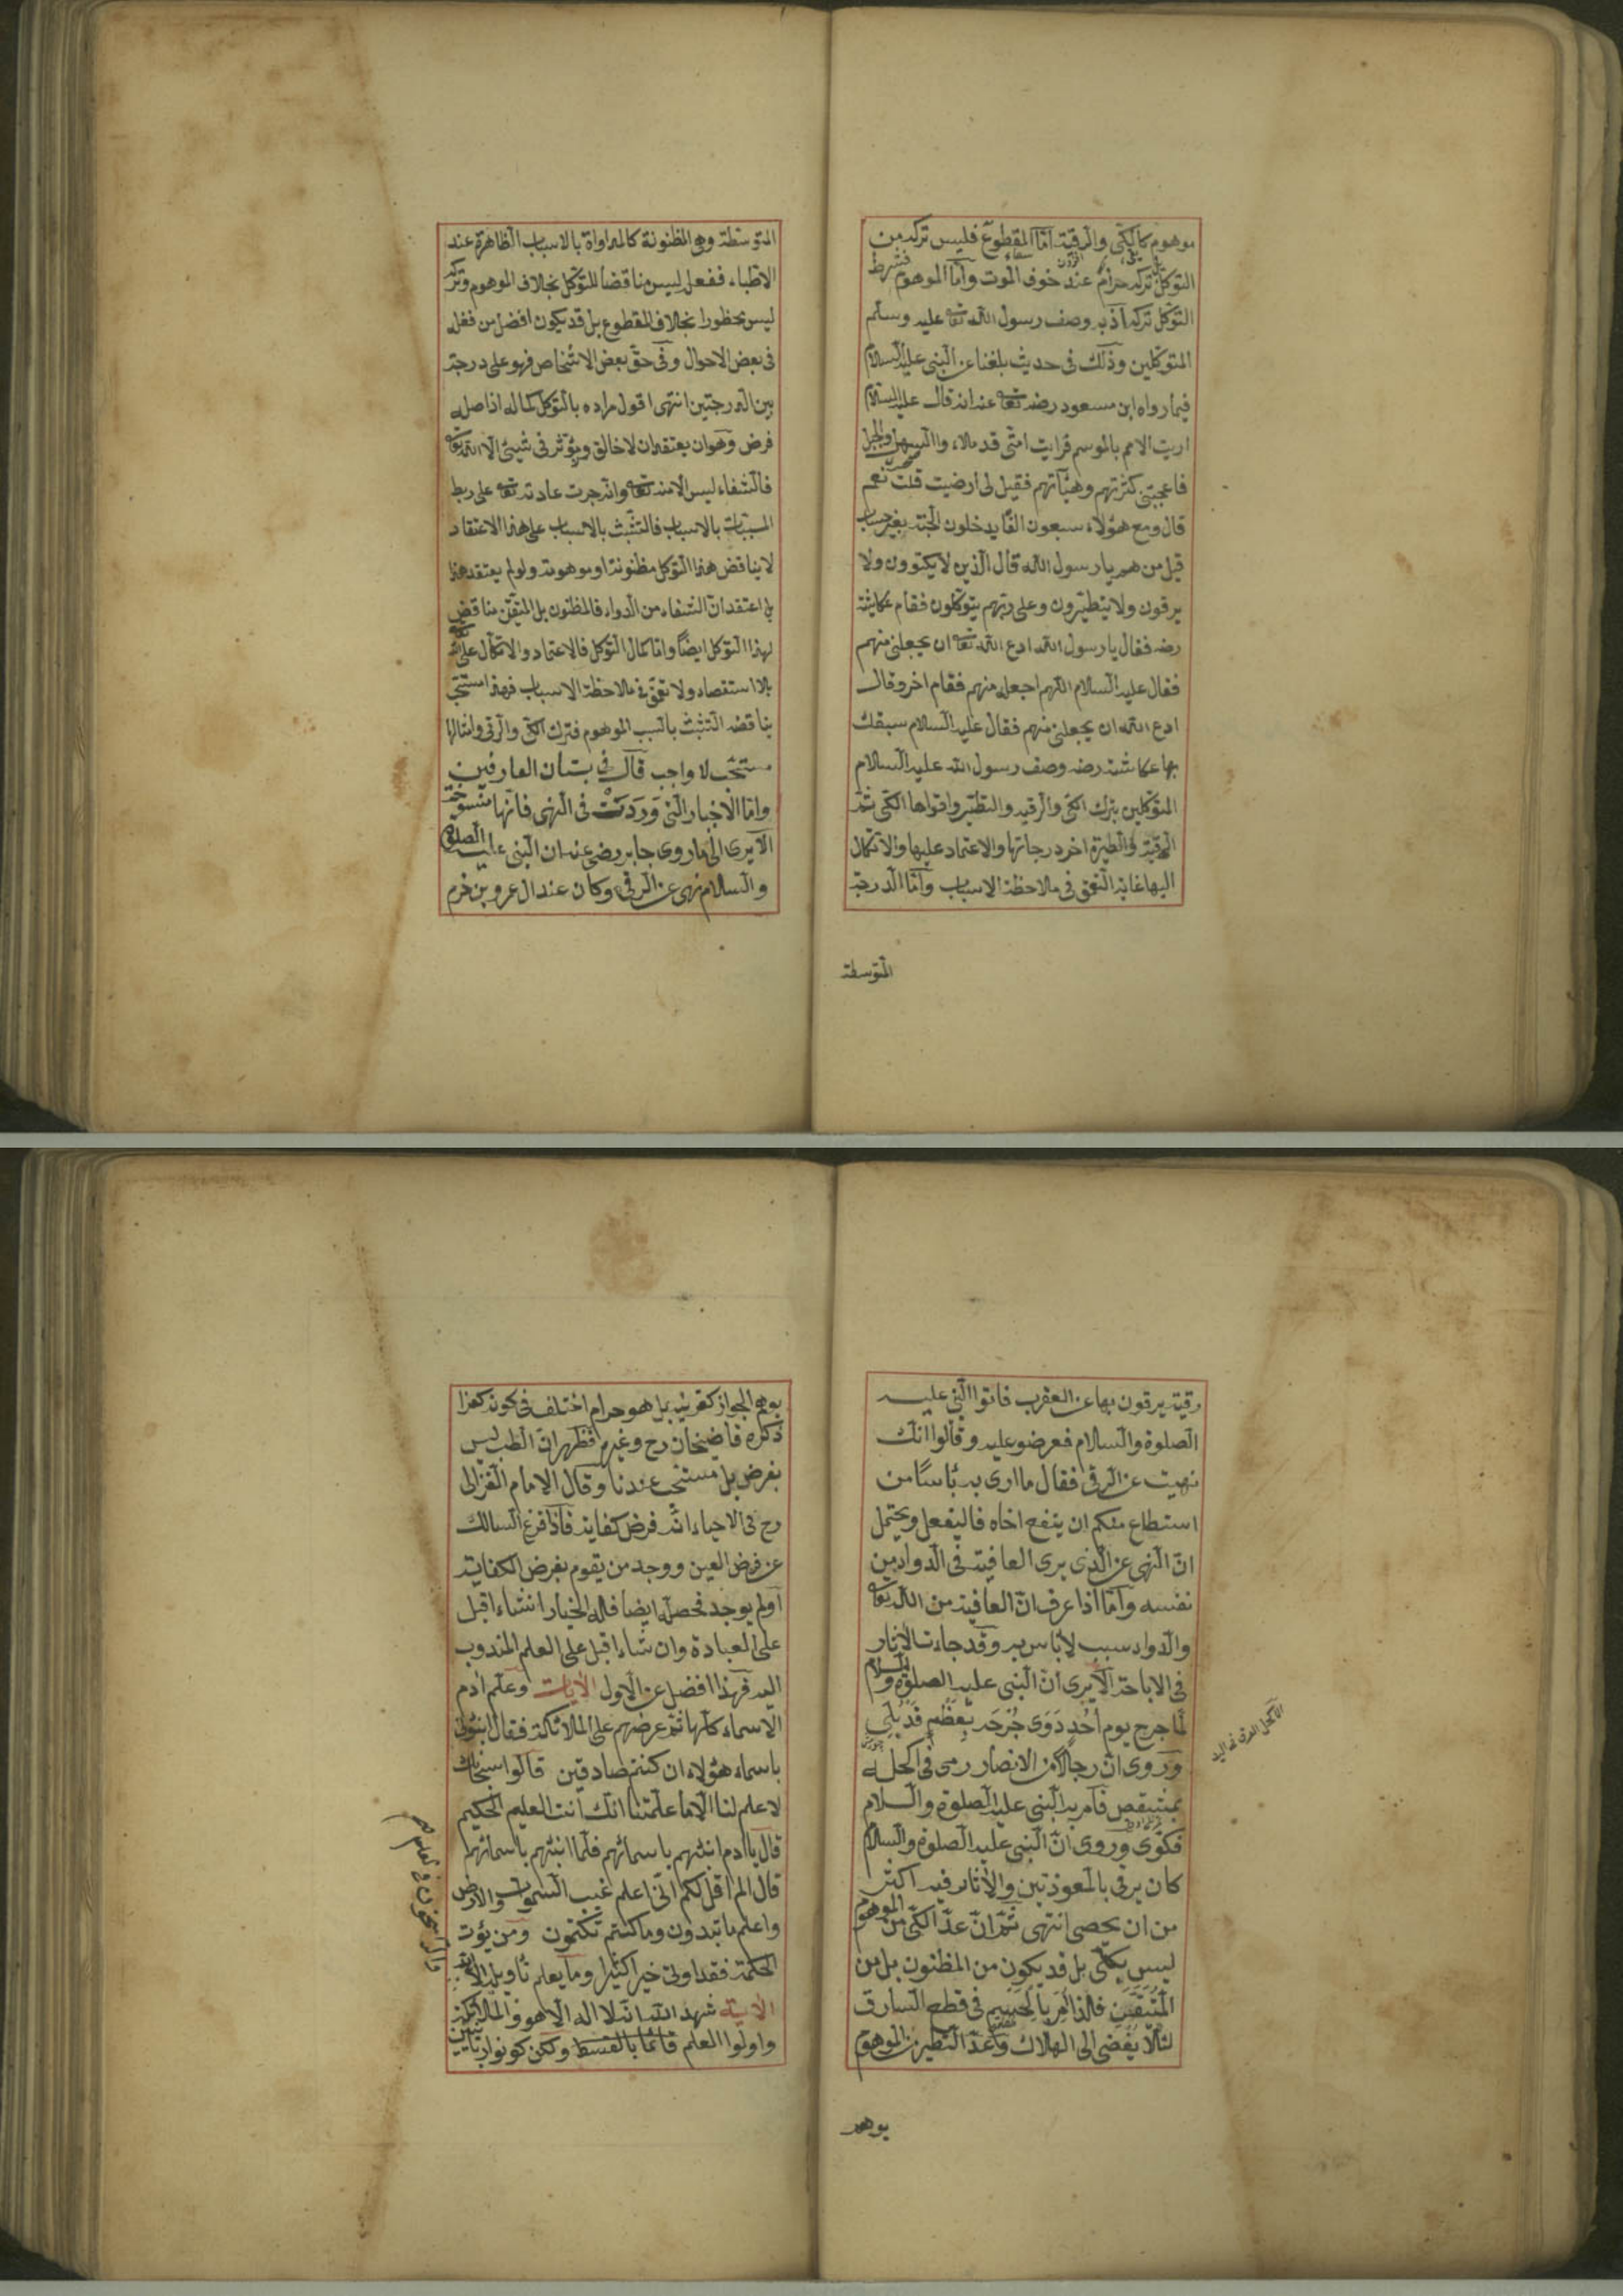 موهوم كالكى والرقية امّا المقطوع فليس تركه من
التوكل بل تركه حرام عند خوف الموت وامّا الموهوم فشرط
التوكل تركه اذ به وصف رسول الله تعا عليه وسلم
المتوكلين وذلك فى حديث بلغنا عن النبى عليه السلام
فيما رواه ابن مسعود رضه تعا عنه انه قال عليه السلام
اريت الامم بالموسم فرايت امتى قد ملاءوا السهل والجبل
فاعجبتنى كثرتهم وهيئآتهم فقيل لى أرضيت قلت نعم
قال ومع هؤلاء سبعون الفًا يدخلون الجنة بغير حساب
قيل من هم يا رسول الله قال الذين لا يكتوون ولا
يرقون ولا يتطيّرون وعلى ربّهم يتوكّلون فقام عكاشة
رضه فقال يا رسول الله ادع الله تعا ان يجعلنى منهم
فقال عليه السلام اللهم اجعله منهم فقام اخر وقال
ادع الله ان يجعلنى منهم فقال عليه السلام سبقك
بها عكاشة رضه وصف رسول الله عليه السلام
المتوكلين بترك الكى والرقيه والتطيّر واقواها الكى ثمّ
الرقية والطيرة اخر درجاتها والاعتماد عليها والاتكال
اليها غاية التعمق فى ملاحظة الاسباب وامّا الدرجة
المتوسطة
المتوسّطة وهى المظنونة كالمداواة بالاسباب الظاهرة عند
الاطباء ففعله ليس مناقضا للتوكل بخلاف الموهوم وتركه
ليس بمحظورا بخلاف المقطوع بل قد يكون افضل من فعله
فى بعض الاحوال وفى حقّ بعض الاشخاص فهو على درجة
بين الدرجتين انتهى اقول مراده بالتوكل كماله اذ اصله
فرض وهو ان يعتقد ان لا خالق ويؤثر فى شيئ الا الله تعا
فالشفاء ليس الا منه تعا وانه جرت عادته تعا على ربط
المسببات بالاسباب فالتشبّث بالاسباب على هذا الاعتقاد
لا يناقض هذا التوكل مظنونة او موهومة ولو لم يعتقد هذا
بل اعتقد انّ الشفاء من الدواء فالمظنون بل المتيقّن مناقض
لهذا التوكل ايضًا وامّا كمال التوكل فالاعتماد والاتكال على الله تعا
بلا استقصاء ولا تعمّق فى ملاحظة الاسباب فهذا مستحبّ
يناقضه التشبث بالسبب الموهوم فترك الكى والرقى وامثالها
مستحّب لا واجب قال فى بستان العارفين
وامّا الاخبار التى وَرَدَتْ فى النهى فانّها منسوخة
الا يرى الى ما روى جابر رضى عنه ان النبى عليه الصلوة
والسلام نهى عن الرقى وكان عند ال عمرو بن حزم
رقية يرقون بها عن العقرب فاتوا النبى عليه
الصلوة والسلام فعرضو عليه وقالوا انّك
نهيت عن الرقى فقال ما ارى به بأسًا من
استطاع منكم ان ينفع اخاه فاليفعل ويحتمل
انّ النهى عن الذى يرى العافية فى الدواء من
نفسه وامّا اذا عرف انّ العافية من الله تعا
والدواء سبب لا بأس به وقد جاءت الاثار
فى الاباحة الا يرى انّ النبى عليه الصلوة والسلام
لمّا جرح يوم اُحُدٍ دَوَى جُرْحَه بِعَظْمٍ قَدْ بَلِىَ
وروى انّ رجلًا من الانصار رمى فى اكحله
بمشقص فامر به النبى عليه الصلوة والسلام
فكوّى وروى انّ النبى عليه الصلوة والسلام
كان يرقى بالمعوذتين والاثار فيه اكثر
من ان يحصى انتهى ثمّ انّ عدّ الكىّ من الموهوم
ليس بكلّى بل قد يكون من المظنون بل من
المُتَيَقَّنِ فلذا اُمِرَ بِالحَسْمِ فى قطع السارق
لئلّا يُفْضِى الى الهلاك وعدّ التطير من الموهوم
يوهم
الاكحل العرق فى اليد
يوهم الجواز كقرينيه بل هو حرام اختلف فى كونه كفرا
ذكره قاضيخان رح وغيره فظهر انّ الطب ليس
بفرض بل مستحب عندنا وقال الامام الغزالى
رح فى الاحياء انّه فرض كفاية فاذا فرغ السالك
عن فرض العين ووجد من يقوم بفرض الكفاية
او لم يوجد فحصله ايضا فله الخيار ان شاء اقبل
على العبادة وان شاء اقبل على العلم المندوب
اليه فهذا افضل عن الاول الايات وعلّم ادم
الاسماء كلّها ثمّ عرضهم على الملائكة فقال انبئونى
باسماء هؤلاء ان كنتم صادقين قالوا سبحانك
لا علم لنا الّا ما علّمتنا انّك انت العليم الحكيم
قال يا ادم انبئهم باسمائهم فلمّا انبئهم باسمائهم
قال الم اقل لكم انّى اعلم غيب السموات والارض
واعلم ما تبدون وما كنتم تكتمون ومن يؤت
الحكمة فقد اوتى خيرا كثيرا وما يعلم تأويله الا الله
الآية شهد الله انّه لا اله الّا هو والملائكة
واولوا العلم قائما بالقسط ولكن كونوا ربّانيّين
والراسخون فى العلم